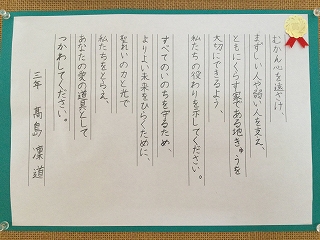 むかん心を遠ざけ、
まずしい人や弱い人を支え、
ともにくらす家である地きゅうを
大切にできるよう、
私たちの役わりを示してください。
すべてのいのちを守るため、
よりよい未来をひらくために、
聖れいの力と光で
私たちをとらえ、
あなたの愛の道具として
つかわしてください。
三年 髙島 凜道